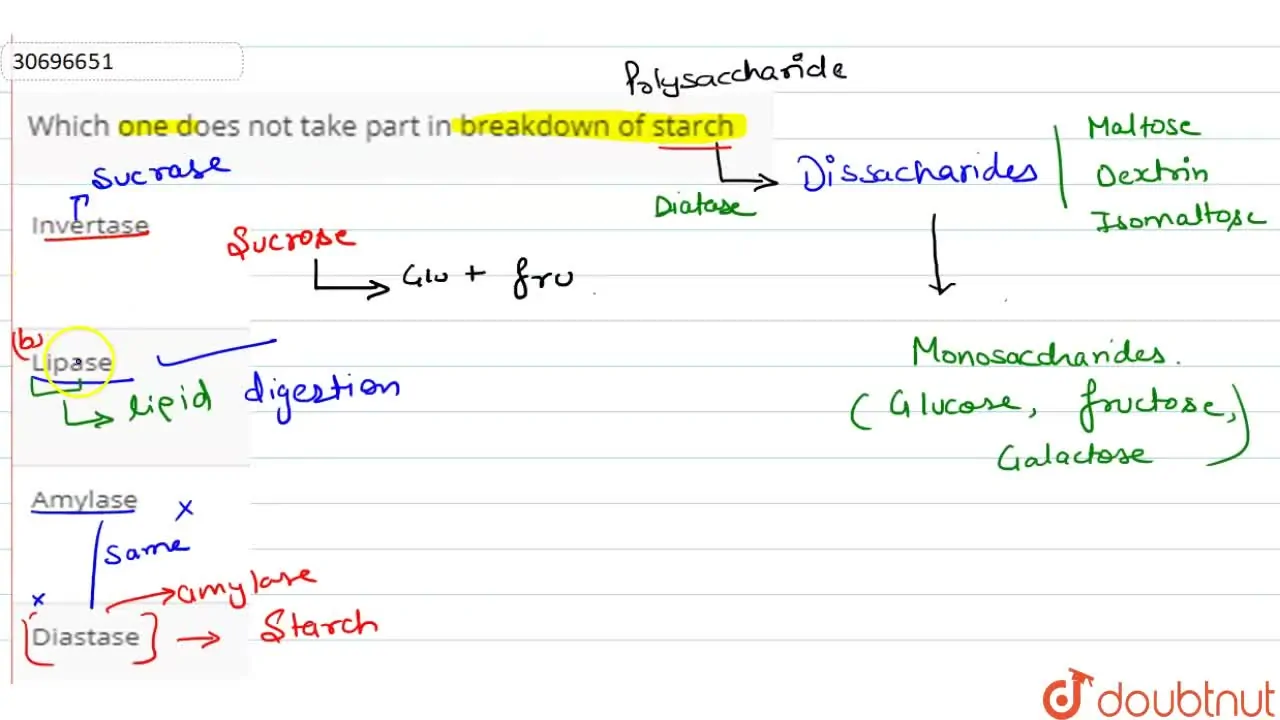 30696651
Polysaccharide
Which one does not take part in breakdown of starch
Maltose
Sucrase
Dissacharides
Dextrin
Diatase
Isomaltose
Invertase
Sucrose
Glu + fru
(b)
Monosaccharides.
Lipase
lipid digestion
(Glucose, fructose,
Galactose)
Amylase x
Same
amylase
x
[Diastase] → Starch
doubtnut